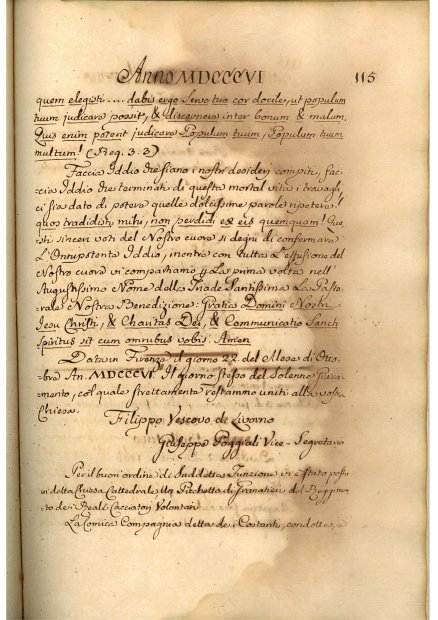 Anno MDCCCVI 115
quem elegisti .... dabis ergo Servo tuo cor docile, ut populum
tuum judicare possit, & discernere inter bonum & malum.
Quis enim poterit judicare Populum tuum, Populum tuum
multum! (Reg. 3. 3)
Faccia Iddio che siano i nostri desiderj compiti, fac-
cia Iddio che terminati di questa mortal vita i travagli,
ci sia dato di potere quelle dolcissime parole ripetere:
quos tradidisti mihi, non perdidi ex eis quemquam! Que
sti sinceri voti del Nostro cuore si degni di confermare
L'Onnipotente Iddio, mentre con tutta L'effusione del
Nostro cuore vi compartiamo p La prima volta nell'
Augustissimo Nome della Triade Santissima La Pasto-
rale Nostra Benedizione: Gratia Domini Nostri
Jesu Christi, & Charitas Dei, & Communicatio Sancti
Spiritus sit cum omnibus vobis. Amen
Data in Firenze il giorno 22. del Mese di Otto-
bre An. MDCCCVI. Il giorno stesso del Solenne Giura-
mento, col quale strettamente restammo uniti alla nostra
Chiesa.
Filippo Vescovo di Livorno
Giuseppe Poggiali Vice-Segretario
Per il buon ordine di Suddetta Funzione in è stato posto
di detta Chiesa Cattedrale un Picchetto di Granatieri del Reggimen
to dei Reali Cacciatori Volontari
La Comica Compagnia detta dei Costanti, condotta, e